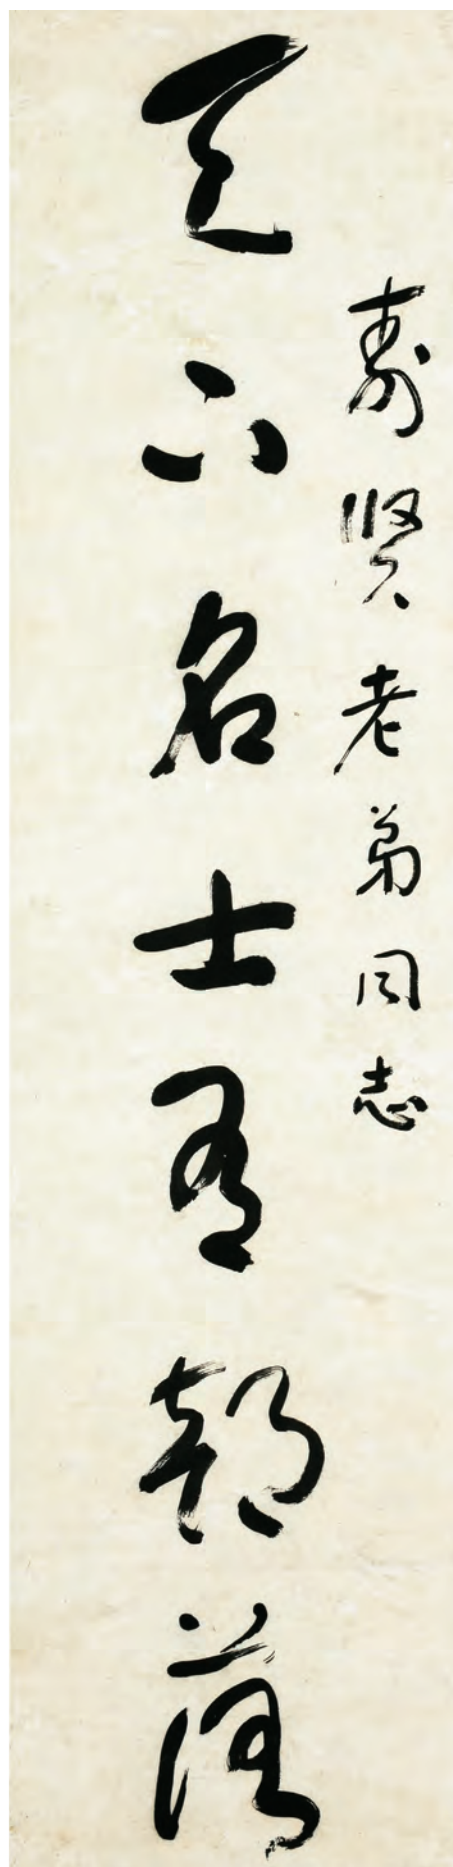 壽賢老弟同志
天下名士有部落